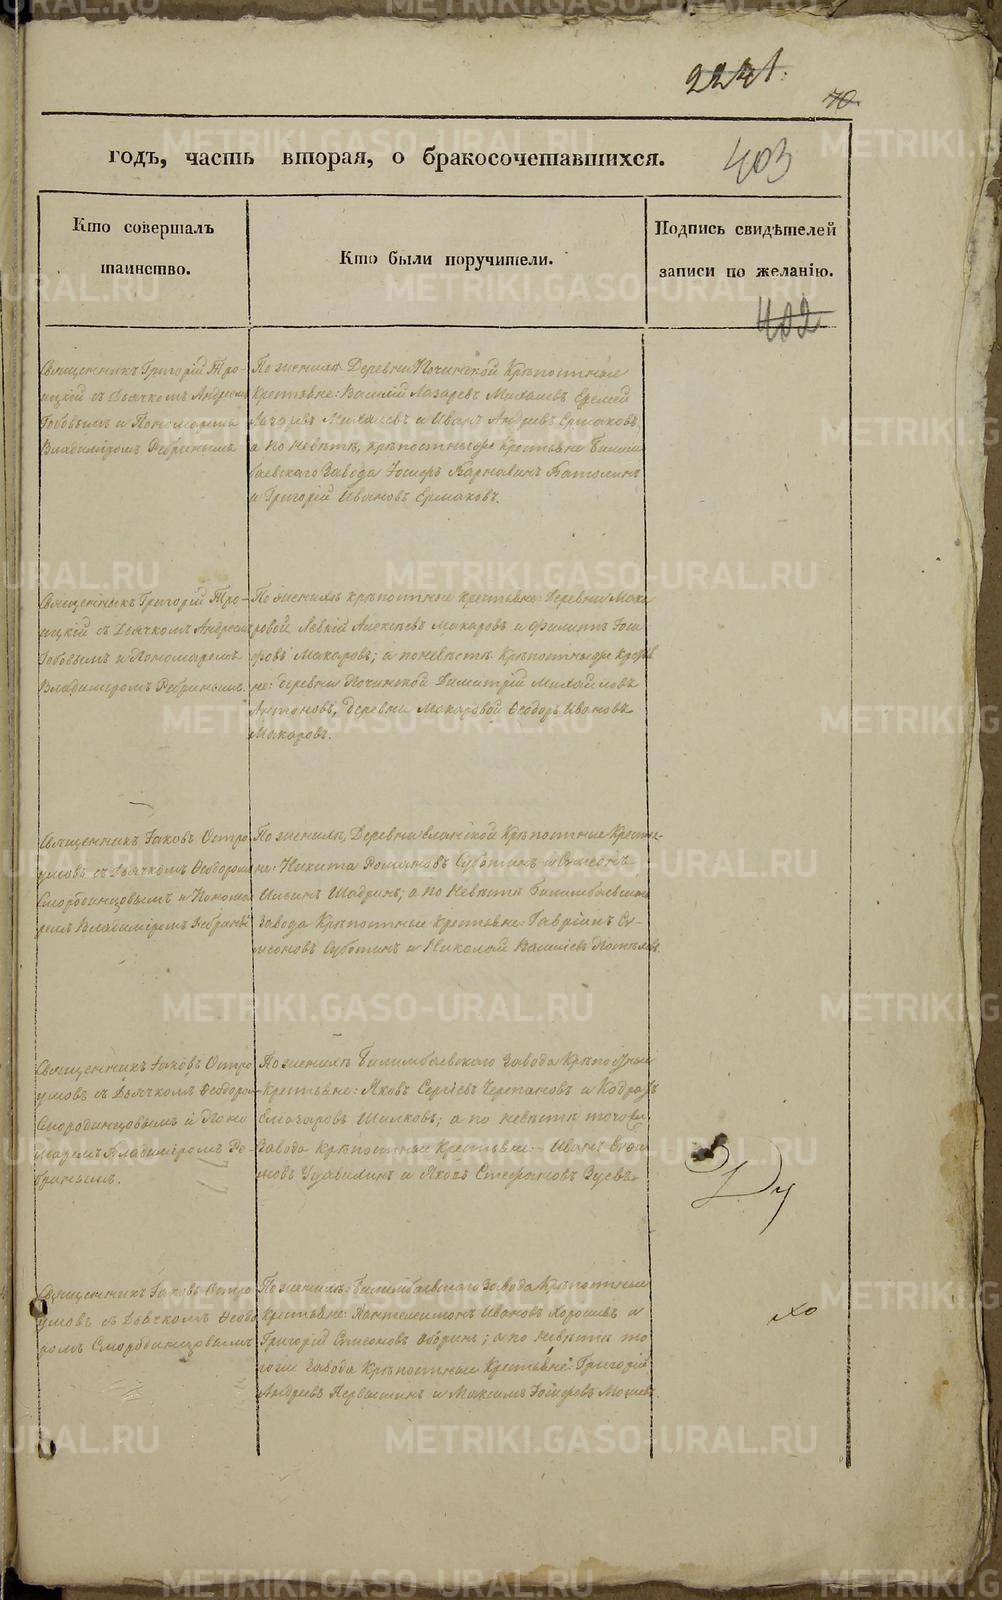 2221.
70.
годъ, часть вторая, о бракосочетавшихся.
403
Кто совершалъ
таинство.
Кто были поручители.
Подпись свидѣтелей
записи по желанію.
402
Священникъ Григорій Тро-
ицкій съ Дьячкомъ Андреемъ
и Пономаремъ
Владиміромъ Ребринымъ
По женихѣ Деревни Починской Крѣпостные
Крестьяне: Василій Лазаревъ Михалевъ Сергей
Лазаревъ Михалевъ и Иванъ Андреевъ Ермаковъ,
а по невѣстѣ, крѣпостные же Крестьяне Билим
баевскаго Завода Іосифъ
и Григорій Ивановъ Ермаковъ.
Священникъ Григорій Тро-
ицкій съ Дьячкомъ Андреемъ
и Пономаремъ
Владиміромъ Ребринымъ.
По женихѣ крѣпостные Крестьяне: Деревни Мака
ровой Алексѣевъ Макаровъ и Филиппъ Іоси
фовъ Макаровъ; а по невѣстѣ Крѣпостные же Крестья
не: деревни Починской Димитрій Михайловъ
Антоновъ, деревни Макаровой Ѳеодоръ Ивановъ
Макаровъ.
Священникъ Іаковъ Остро
умовъ съ Дьячкомъ Ѳеодоромъ
Смородинцовымъ и Понома
ремъ Владиміромъ Ребринымъ
По женихѣ, Деревни Крѣпостные Крестья-
не: Никита Романовъ Суботинъ и Симеонъ
Ильинъ Шадринъ; а по невѣстѣ Билимбаевскаго
Завода Крѣпостные Крестьяне: Гавріилъ Си-
меоновъ Суботинъ и Николай
Священникъ Іаковъ Остро
умовъ съ Дьячкомъ Ѳеодоромъ
Смородинцовымъ и Поно
маремъ Владиміромъ Ре-
бринымъ.
По женихѣ Билимбаевскаго Завода Крѣпостные
Крестьяне: Яковъ Сергіевъ Черепановъ и Кодратъ
Елиазаровъ Шилковъ; а по невѣстѣ тогоже
Завода Крѣпостные Крестьяне: Иванъ
и Яковъ Стефановъ Зуевъ.
Священникъ Іаковъ Остро
умовъ съ Дьячкомъ Ѳеодо
ромъ Смородинцовымъ
По женихѣ: Билимбаевскаго Завода Крѣпостные
Крестьяне: Пантелеимонъ Ивановъ Хорошевъ и
Григорій Симеоновъ Оборинъ; а по невѣстѣ то
гоже Завода Крѣпостные Крестьяне: Григорій
Андреевъ Первышинъ и Максимъ Іосифовъ
хо
METRIKI.GASO-URAL.RU